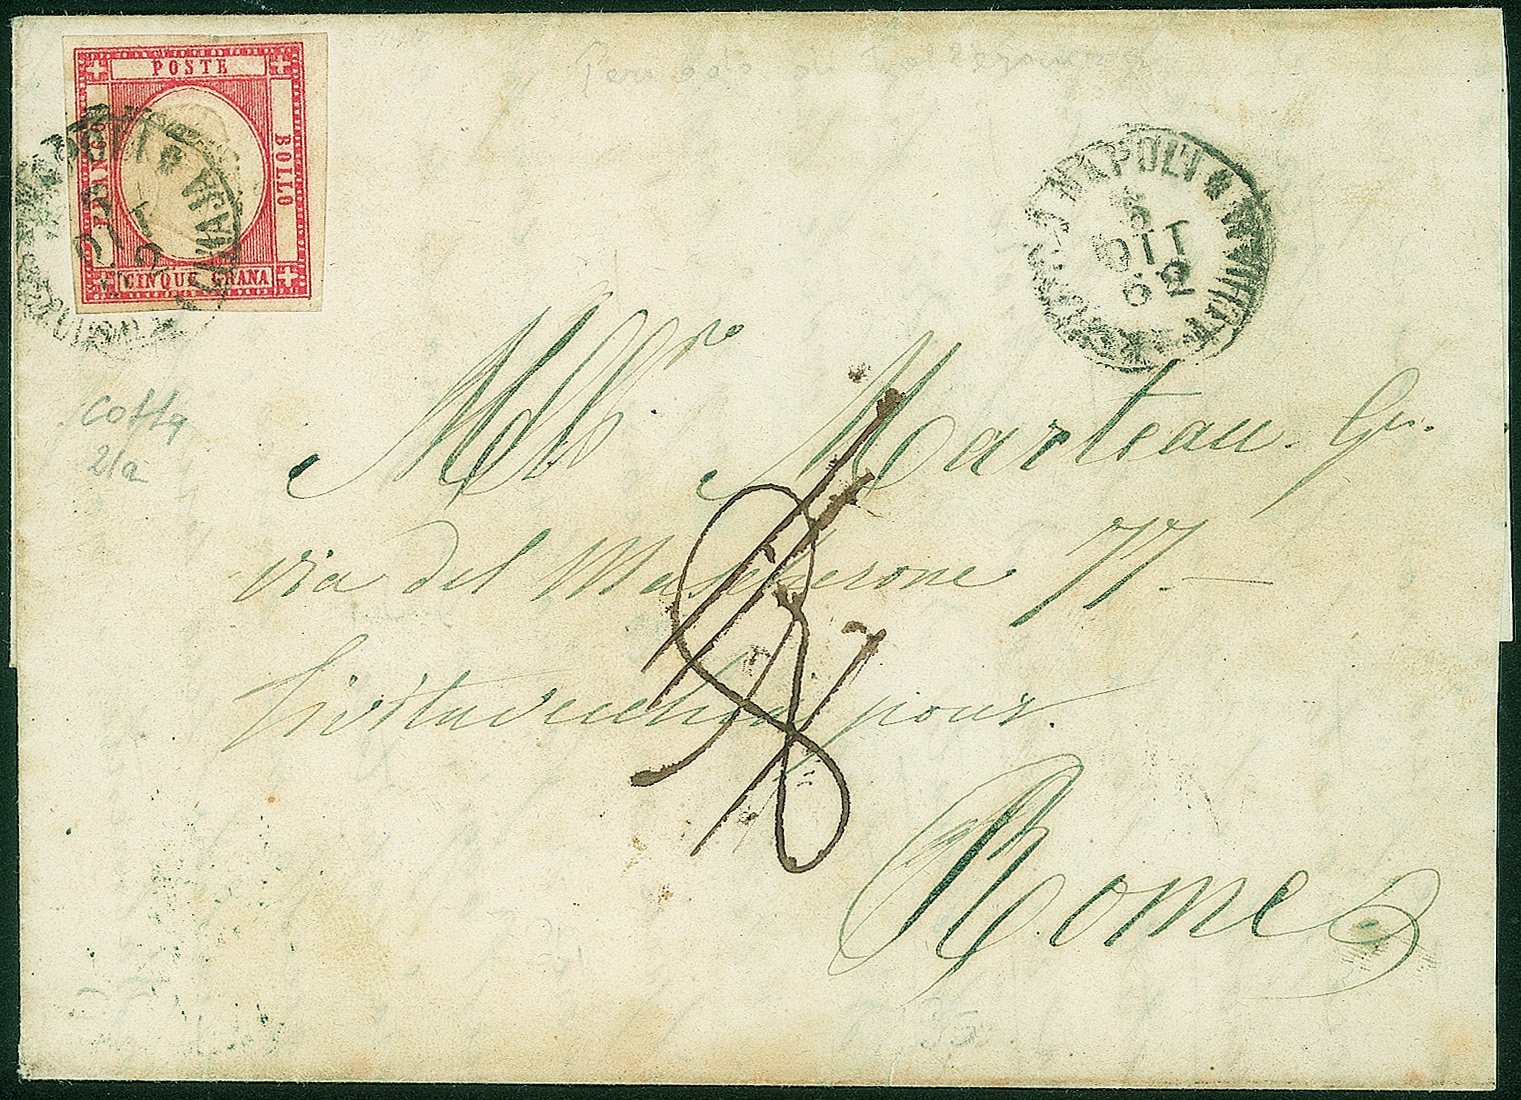 POSTE
FRANCO
BOLLO
CINQUE GRANA
NAPOLI
NAPOLI
5
OTT
62
Cotta
21a
Marteau
via del Mascherone 77
Civitavecchia pour
Rome
8